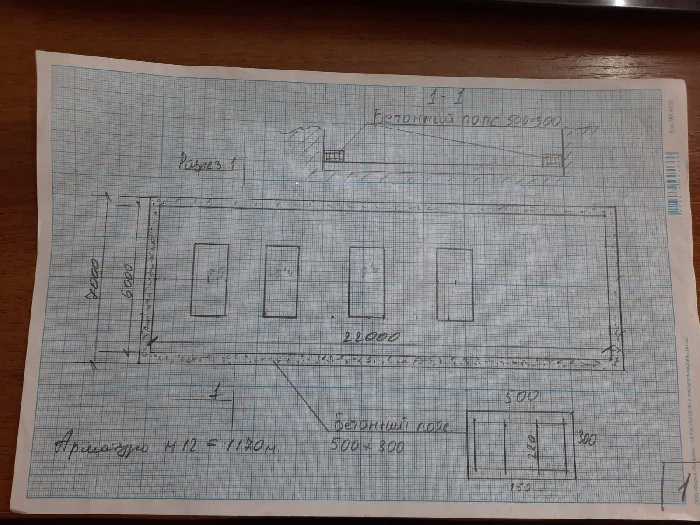 1-1
Бетонний пояс 500×300
Разрез 1
7000
6000
22000
1
Бетонний пояс
500 × 300
Арматура н 12 = 1170м
500
300
150
1